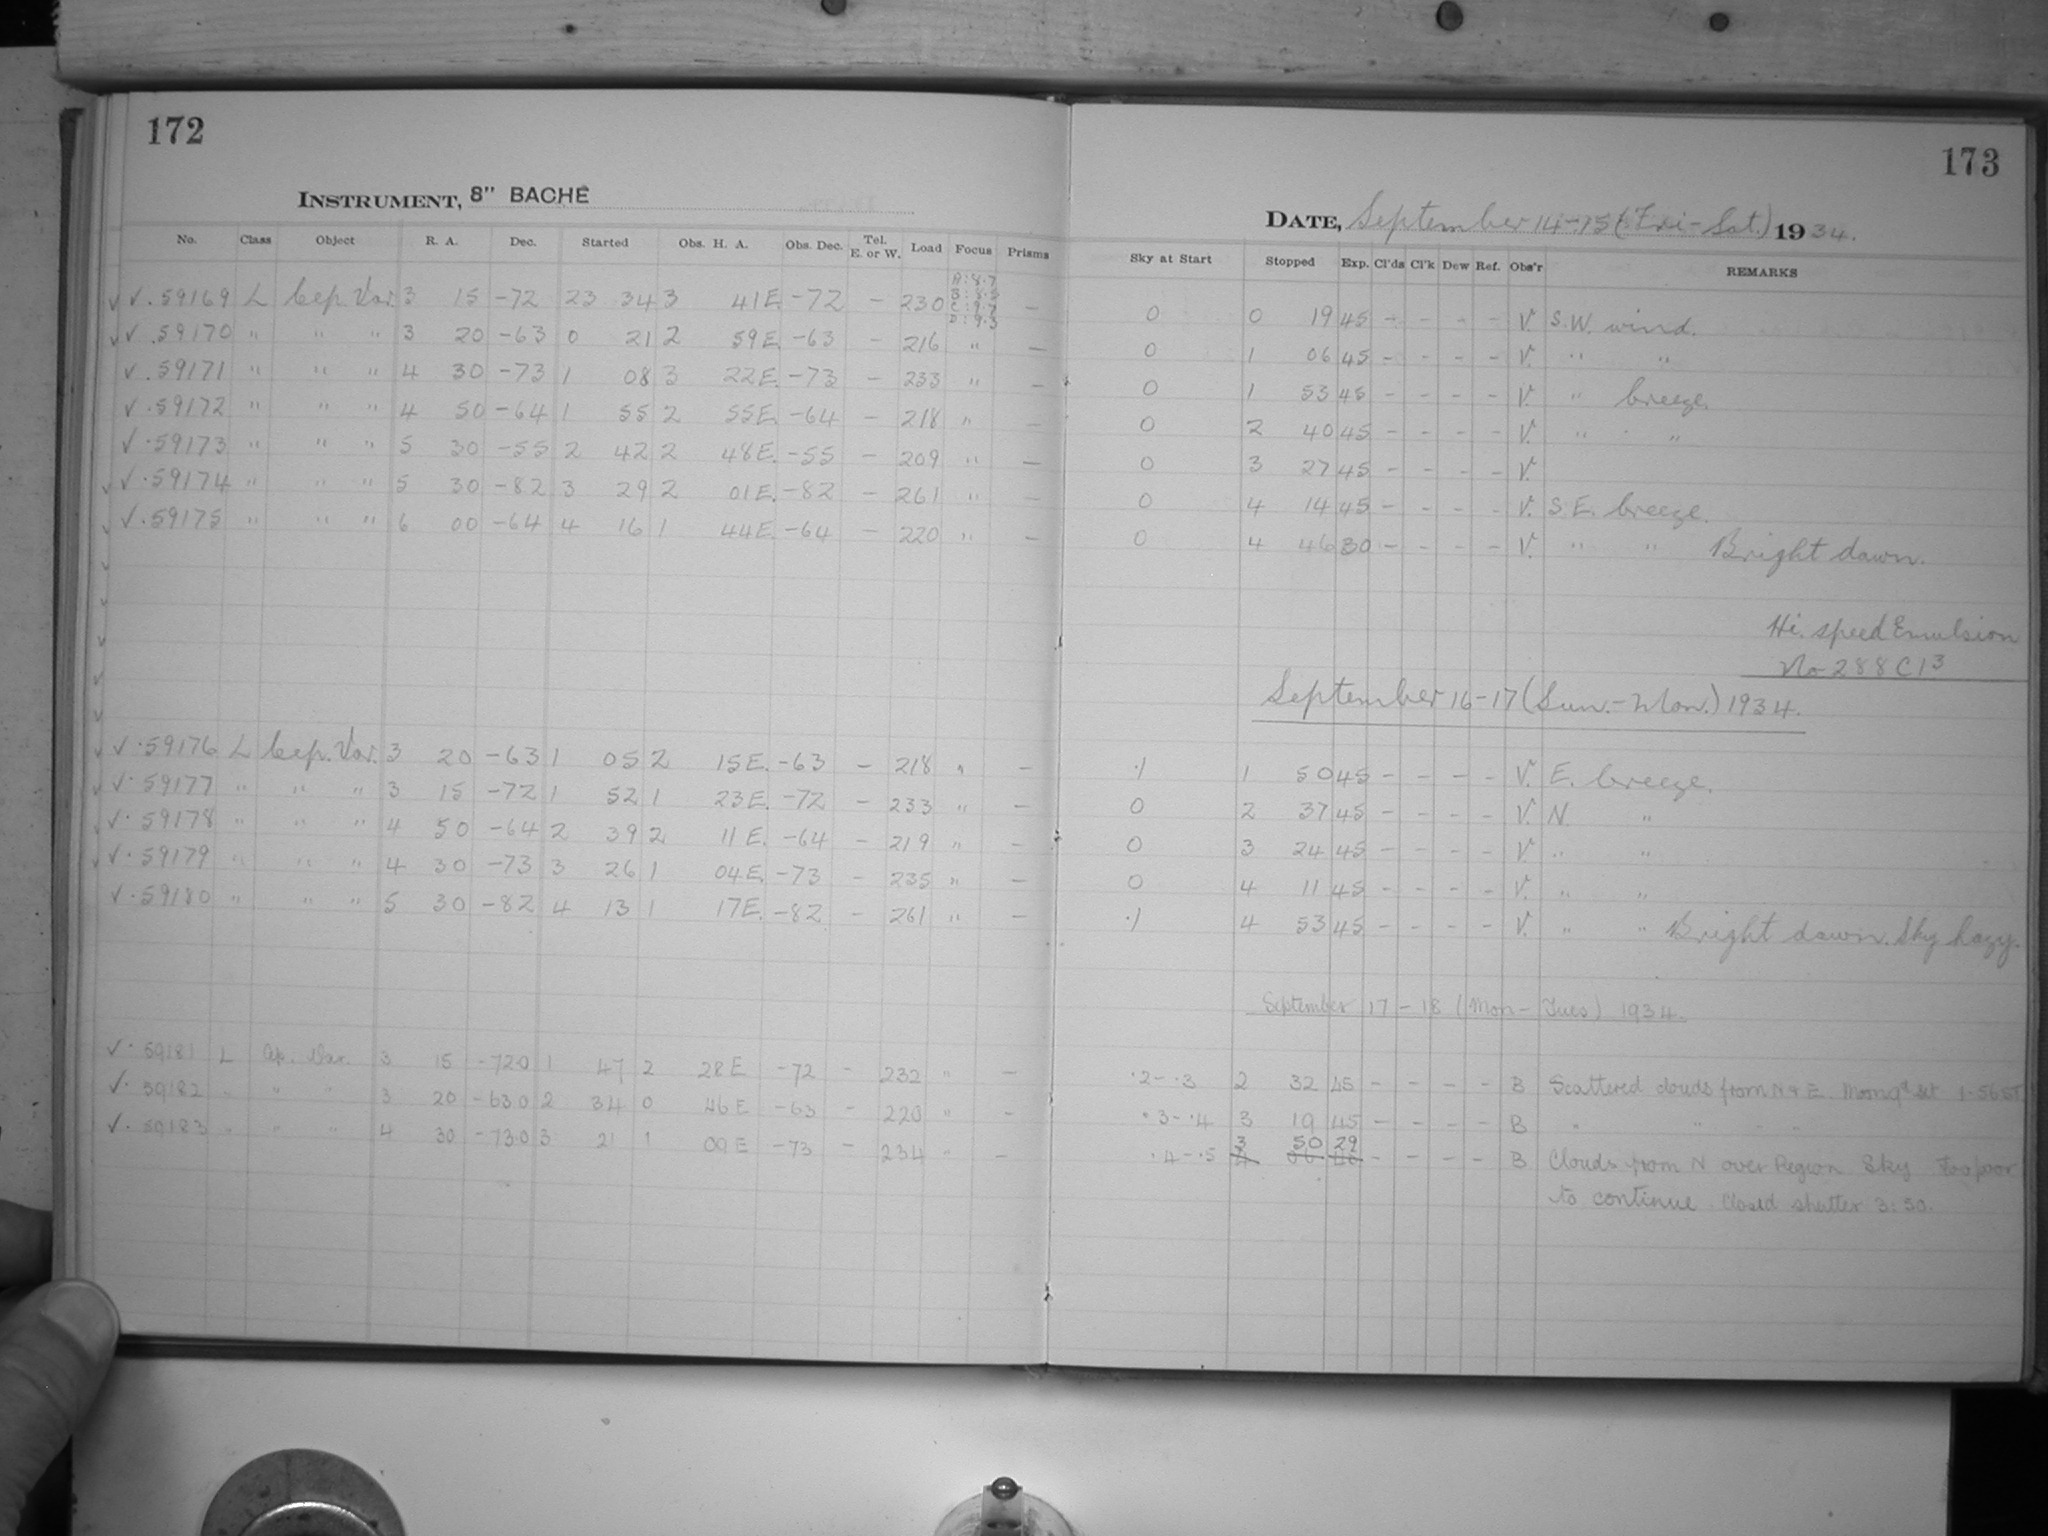 172
INSTRUMENT, 8" BACHE
No. Class Object R. A. Dec. Started Obs. H. A. Obs. Dec. Tel. E. or W. Load Focus Prisms
√ √ .59169 L Cep. Var. 3 15 -72 23 34 3 41E. -72 - 230 A:8.7 B:8.5 C:9.7 D:9.3 —
√ √ .59170 " " " 3 20 -63 0 21 2 59E. -63 - 216 " —
√ .59171 " " " 4 30 -73 1 08 3 22E. -73 - 233 " —
√ .59172 " " " 4 50 -64 1 55 2 55E. -64 - 218 " —
√ .59173 " " " 5 30 -55 2 42 2 48E. -55 - 209 " —
√ √ .59174 " " " 5 30 -82 3 29 2 01E. -82 - 261 " —
√ √ .59175 " " " 6 00 -64 4 16 1 44E. -64 - 220 " —
√ √ .59176 L Cep. Var. 3 20 -63 1 05 2 15E. -63 - 218 " —
√ √ .59177 " " " 3 15 -72 1 52 1 23E. -72 - 233 " —
√ √ .59178 " " " 4 50 -64 2 39 2 11E. -64 - 219 " —
√ √ .59179 " " " 4 30 -73 3 26 1 04E. -73 - 235 " —
√ .59180 " " " 5 30 -82 4 13 1 17E. -82 - 261 " —
√ . 59181 L Cep. Var. 3 15 -720 1 47 2 28E -72 - 232 " —
√ . 59182 " " " 3 20 -630 2 34 0 46E -63 - 220 " —
√ . 59183 " " " 4 30 -730 3 21 1 09E -73 - 234 " —
173
DATE, September 14-15 (Fri-Sat.) 1934.
Sky at Start Stopped Exp. Cl'ds Cl'k Dew Ref. Obs'r REMARKS
0 0 19 45 - - - - V. S.W. wind.
0 1 06 45 - - - - V. " "
0 1 53 45 - - - - V. " breeze.
0 2 40 45 - - - - V. " "
0 3 27 45 - - - - V.
0 4 14 45 - - - - V. S.E. breeze.
0 4 46 30 - - - - V. " " Bright dawn.
Hi. speed Emulsion
No 288C13
September 16-17 (Sun.-Mon.) 1934.
.1 1 50 45 - - - - V. E. breeze.
0 2 37 45 - - - - V. N. "
0 3 24 45 - - - - V. " "
0 4 11 45 - - - - V. " "
.1 4 53 45 - - - - V. " " Bright dawn. Sky hazy.
September 17-18 (Mon-Tues) 1934.
.2-.3 2 32 45 - - - - B Scattered clouds from N & E. Moon set 1.56
.3-.4 3 19 45 - - - - B " " " "
3 50 29
.4-.5 - - - - B Clouds from N over Region Sky too poor
to continue. Closed shutter 3:50.